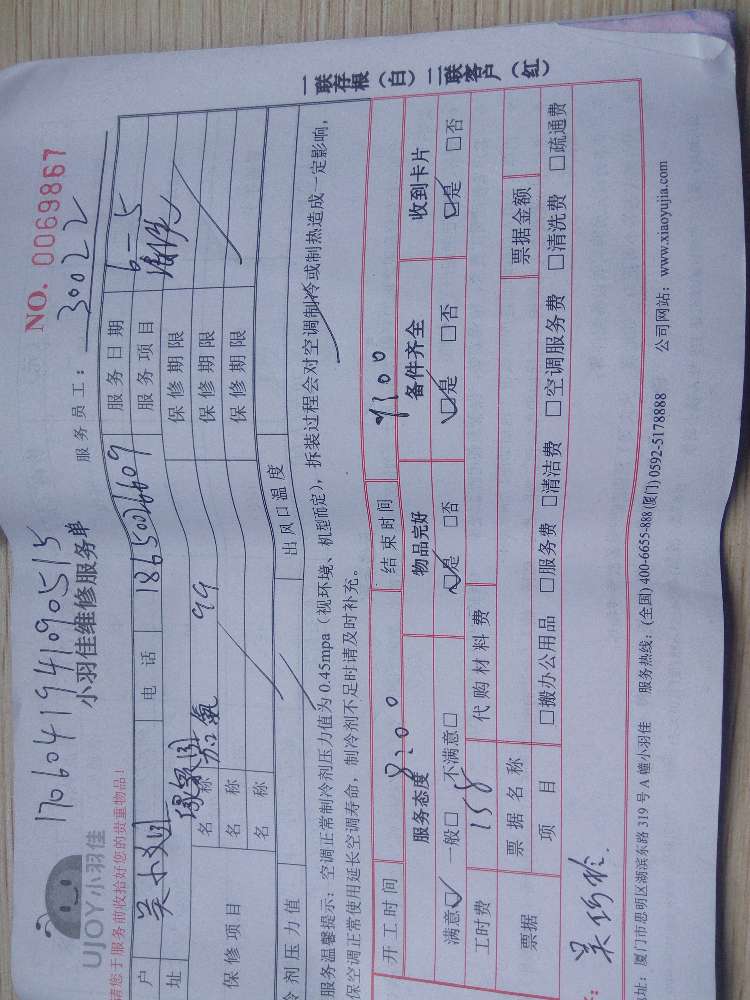 一联存根（白）二联客户（红）
NO. 0069867
1706041941090515
UJOY小羽佳
小羽佳维修服务单
服务员工： 30022
请您于服务前收拾好您的贵重物品！
户 电 话 18650026609 服务日期 6-5
址 服务项目
保修项目 名 称 加氟 99 保修期限
名 称 保修期限
名 称 保修期限
冷剂压力值 出风口温度
服务温馨提示：空调正常制冷剂压力值为0.45mpa（视环境、机型而定），拆装过程会对空调制冷或制热造成一定影响，
保空调正常使用延长空调寿命，制冷剂不足时请及时补充。
开工时间 8:00 结束时间 9:00
服务态度 物品完好 备件齐全 收到卡片
满意☑ 一般□ 不满意□ ☑是 □否 ☑是 □否 ☑是 □否
工时费 158 代购材料费
票据 票据名称 票据金额
项 目 □搬办公用品 □服务费 □清洁费 □空调服务费 □清洗费 □疏通费
地址：厦门市思明区湖滨东路319号A幢小羽佳 服务热线：(全国) 400-6655-888 (厦门) 0592-5178888 公司网站：www.xiaoyujia.com